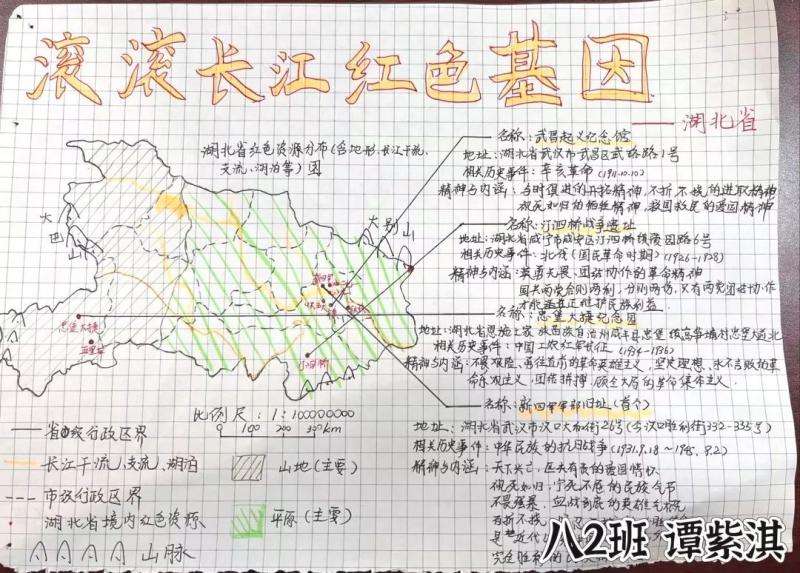 滚滚长江红色基因
——湖北省
湖北省红色资源分布(含地形、长江干流、
支流、湖泊等)图
大巴山
大别山
忠堡大捷
汀泗桥
名称:武昌起义纪念馆
地址:湖北省武汉市武昌区武珞路1号
相关历史事件:辛亥革命(1911.10.10)
精神与内涵:与时俱进的开拓精神,不折不挠的进取精神
视死如归的牺牲精神,救国救民的爱国精神
名称:汀泗桥战争遗址
地址:湖北省咸宁市咸安区汀泗桥线陵园路6号
相关历史事件:北伐(国民革命时期)(1926-1928)
精神与内涵:英勇无畏、团结协作的革命精神
国共两党合则两利,分则两伤,只有两党团结协作
才能真正维护民族利益.
名称:忠堡大捷纪念园
地址:湖北省恩施土家族苗族自治州咸丰县忠堡镇高笋塘村忠堡大道北
相关历史事件:中国工农红军长征(1934-1936)
精神与内涵:不畏艰险、勇往直前的革命英雄主义,坚定理想、永不言败的革
命乐观主义,团结拼搏、顾全大局的革命集体主义.
名称:新四军军部旧址(首个)
地址:湖北省武汉市汉口大和街26号(今汉口胜利街332-335号)
相关历史事件:中华民族的抗日战争(1931.9.18~1945.9.2)
精神与内涵:天下兴亡,匹夫有责的爱国情怀
视死如归、宁死不屈的民族气节
不畏强暴、血战到底的英雄气概
百折不挠
比例尺:1:10000000
0 100 200 300km
省级行政区界
长江干流、支流、湖泊
市级行政区界
湖北省境内红色资源
山脉
山地(主要)
平原(主要)
八2班 谭紫淇